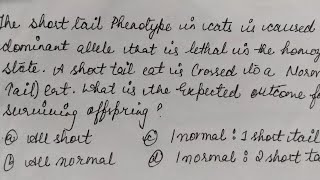 The short tail Phenotype in cats is caused
dominant allele that is lethal in the homoz
state. A short tail cat is Crossed to a Norm
Tail) Cat. What is the Expected outcome fo
surviving offspring ?
(a) All short (c) 1 normal : 1 short tail
(b) All normal (d) 1 normal : 2 short ta